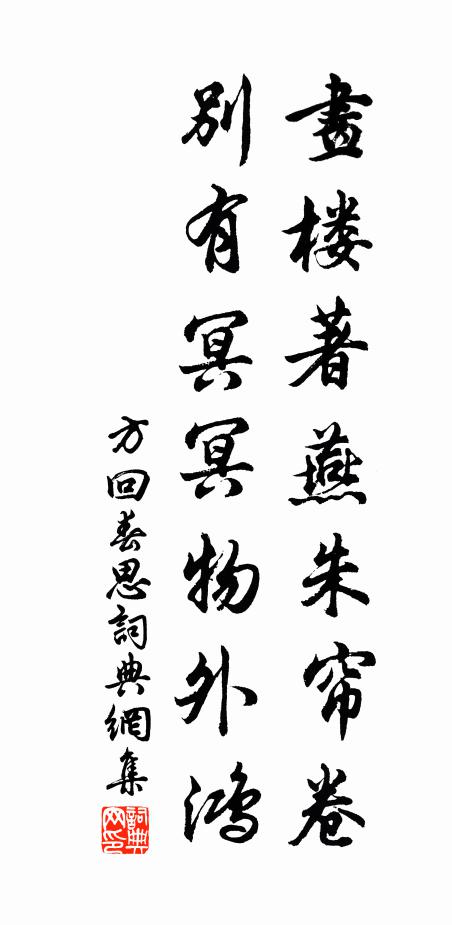 畫楼著燕朱帘卷
别有冥冥物外鸿
方回春思詞典網集
詞典網印